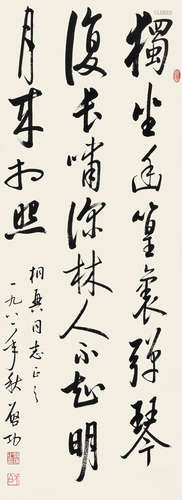 獨坐幽篁裏彈琴
復長嘯深林人不知明
月來相照
桐興同志正之
一九八二年秋 啟功